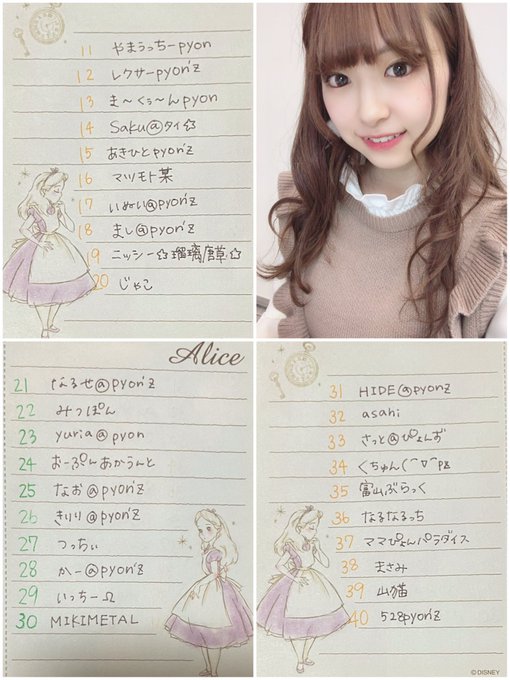 11 やまうっちーpyon
12 レクサーpyon'z
13 ま〜くぅ〜んpyon
14 Saku@タイ☆
15 あきひとpyon'z
16 マツモト某
17 いぬい@pyon'z
18 まし@pyon'z
19 ニッシー☆瑠璃唐草☆
20 じゃこ
Alice
21 なるせ@pyon'z
22 みっぽん
23 yuria@pyon
24 おーぷんあかうんと
25 なお@pyon'z
26 きりり@pyon'z
27 つっちぃ
28 かー@pyon'z
29 いっちーΩ
30 MIKIMETAL
31 HIDE@pyonz
32 asahi
33 さっと@ぴょんず
34 くちゅん(^▽^pz
35 富山ぶらっく
36 なるなるっち
37 ママぴょんパラダイス
38 まさみ
39 山猫
40 528pyon'z
©DISNEY